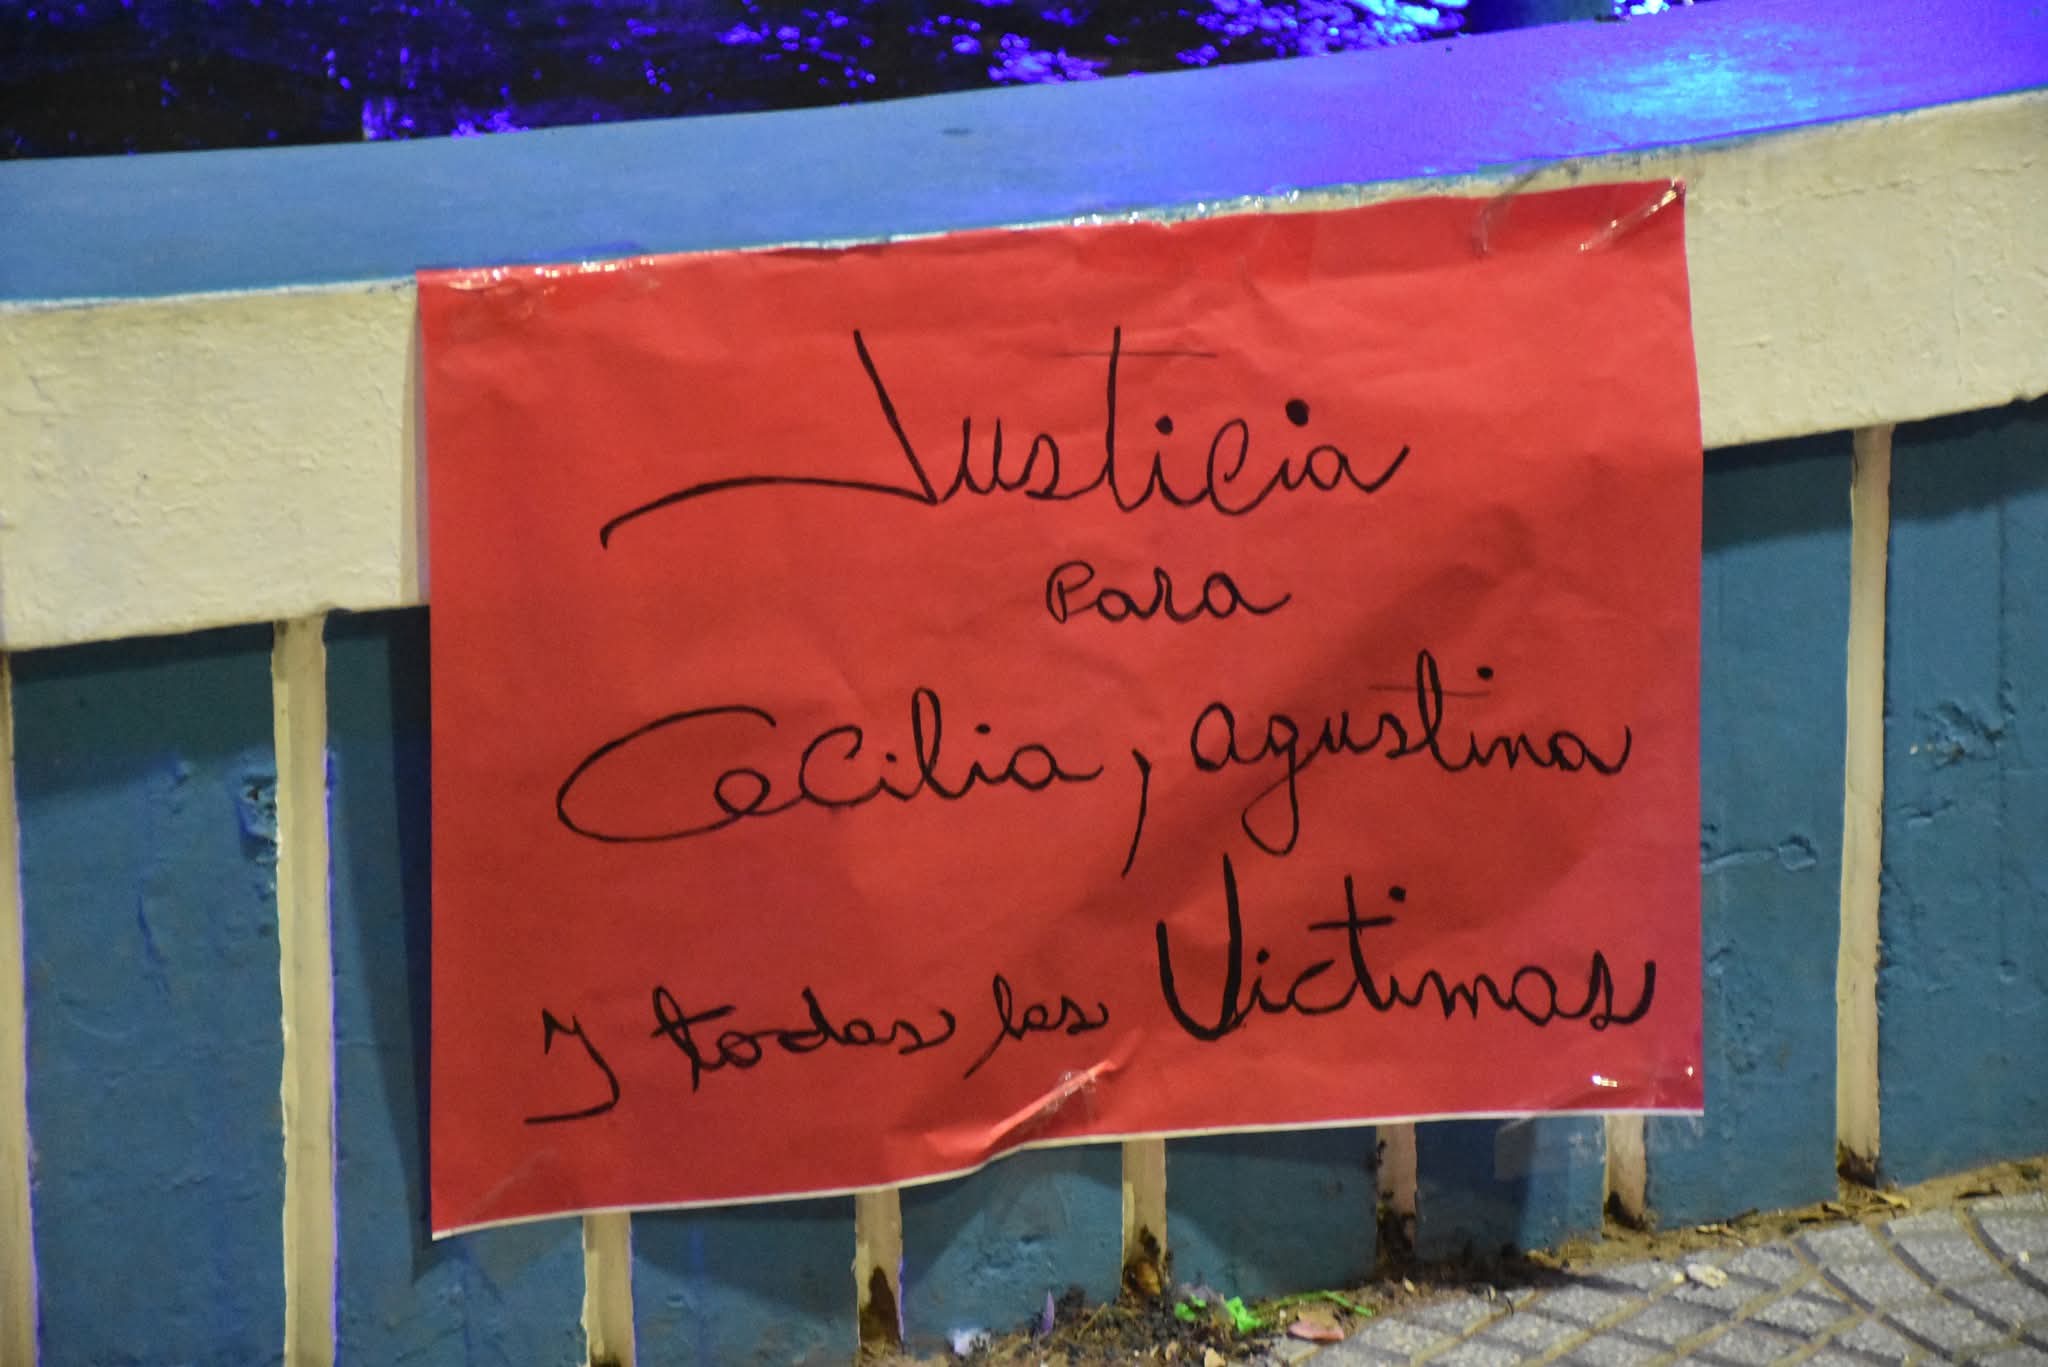 Justicia
Para
Cecilia, agustina
y todas las Victimas